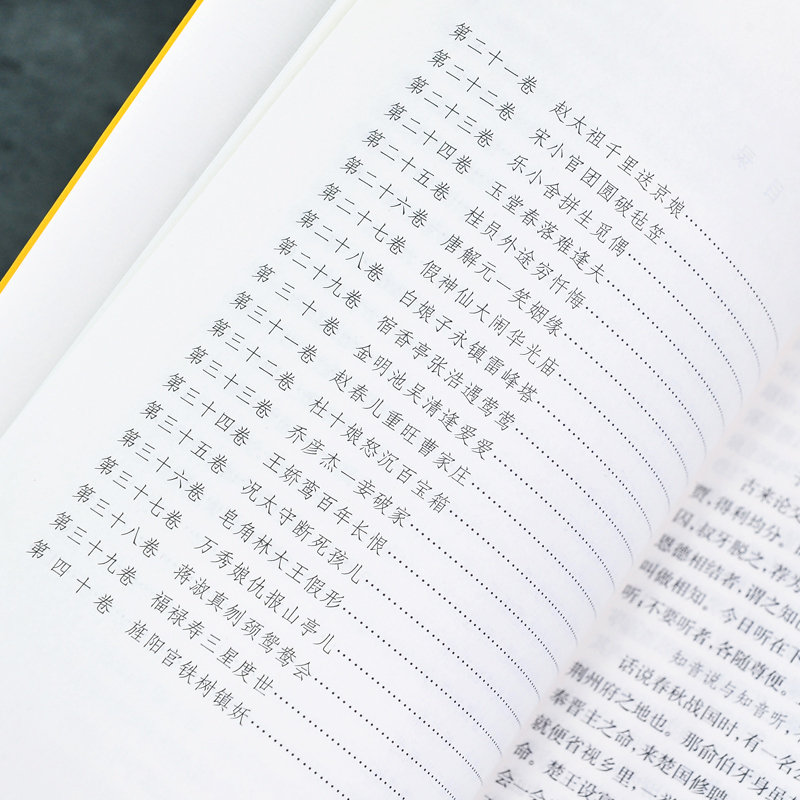 第二十一卷 赵太祖千里送京娘
第二十二卷 宋小官团圆破毡笠
第二十三卷 乐小舍拼生觅偶
第二十四卷 玉堂春落难逢夫
第二十五卷 桂员外途穷忏悔
第二十六卷 唐解元一笑姻缘
第二十七卷 假神仙大闹华光庙
第二十八卷 白娘子永镇雷峰塔
第二十九卷 宿香亭张浩遇莺莺
第三十卷 金明池吴清逢爱爱
第三十一卷 赵春儿重旺曹家庄
第三十二卷 杜十娘怒沉百宝箱
第三十三卷 乔彦杰一妾破家
第三十四卷 王娇鸾百年长恨
第三十五卷 况太守断死孩儿
第三十六卷 皂角林大王假形
第三十七卷 万秀娘仇报山亭儿
第三十八卷 蒋淑真刎颈鸳鸯会
第三十九卷 福禄寿三星度世
第四十卷 旌阳宫铁树镇妖
古来论交
贾，得利均分。
囚，叔牙脱之，荐为
恩德相结者，谓之知
叫做相知。今日听在下
听；不要听者，各随尊便。
知音说与知音听，
话说春秋战国时，有一名公
荆州府之地也。那俞伯牙身虽
奉晋主之命，来楚国修聘
就便省视乡里，一
命。楚王设宴
会一会